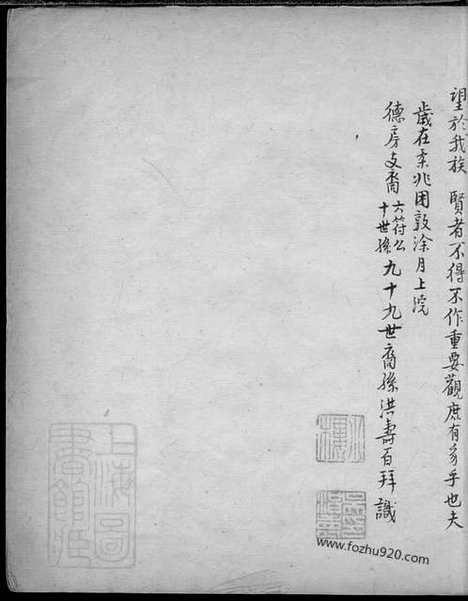 望於我族賢者不得不作重要觀庶有豸乎也夫
歲在柔兆困敦涂月上浣
德房支裔六符公十世孫九十九世裔孫洪壽百拜識
上海圖書館藏
www.fozhu920.com